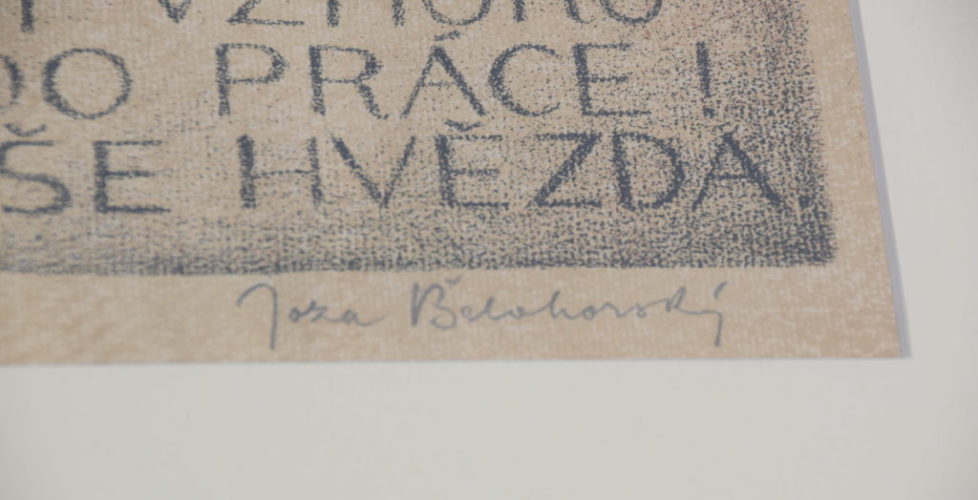 VZHŮRU
DO PRÁCE!
ŠE HVĚZDA
Joza Bělohorský